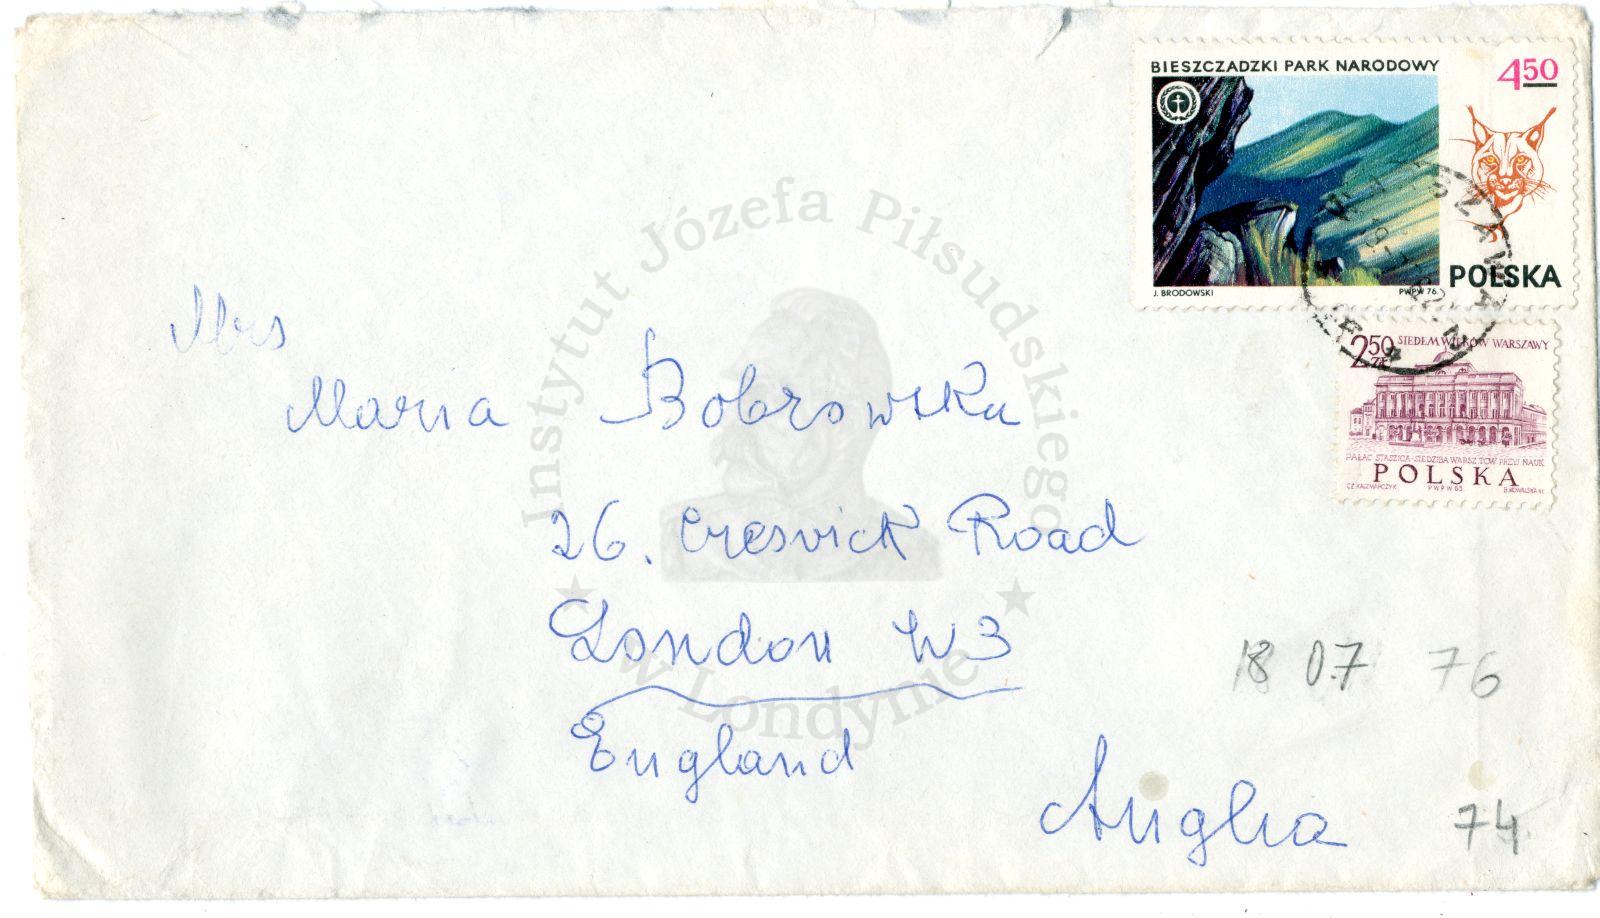 BIESZCZADZKI PARK NARODOWY
450
POLSKA
J. BRODOWSKI
PWPW 76.
WARSZAWA
250 ZŁ
SIEDEM WIEKÓW WARSZAWY
PAŁAC STASZICA-SIEDZIBA WARSZ. TOW. PRZYJ. NAUK
POLSKA
CZ. KACZMARCZYK
PWPW 65
Instytut Józefa Piłsudskiego
w Londynie
Mrs
Maria Bobrowska
26. Cresvick Road
London W3
England
Anglia
18 07 76
74